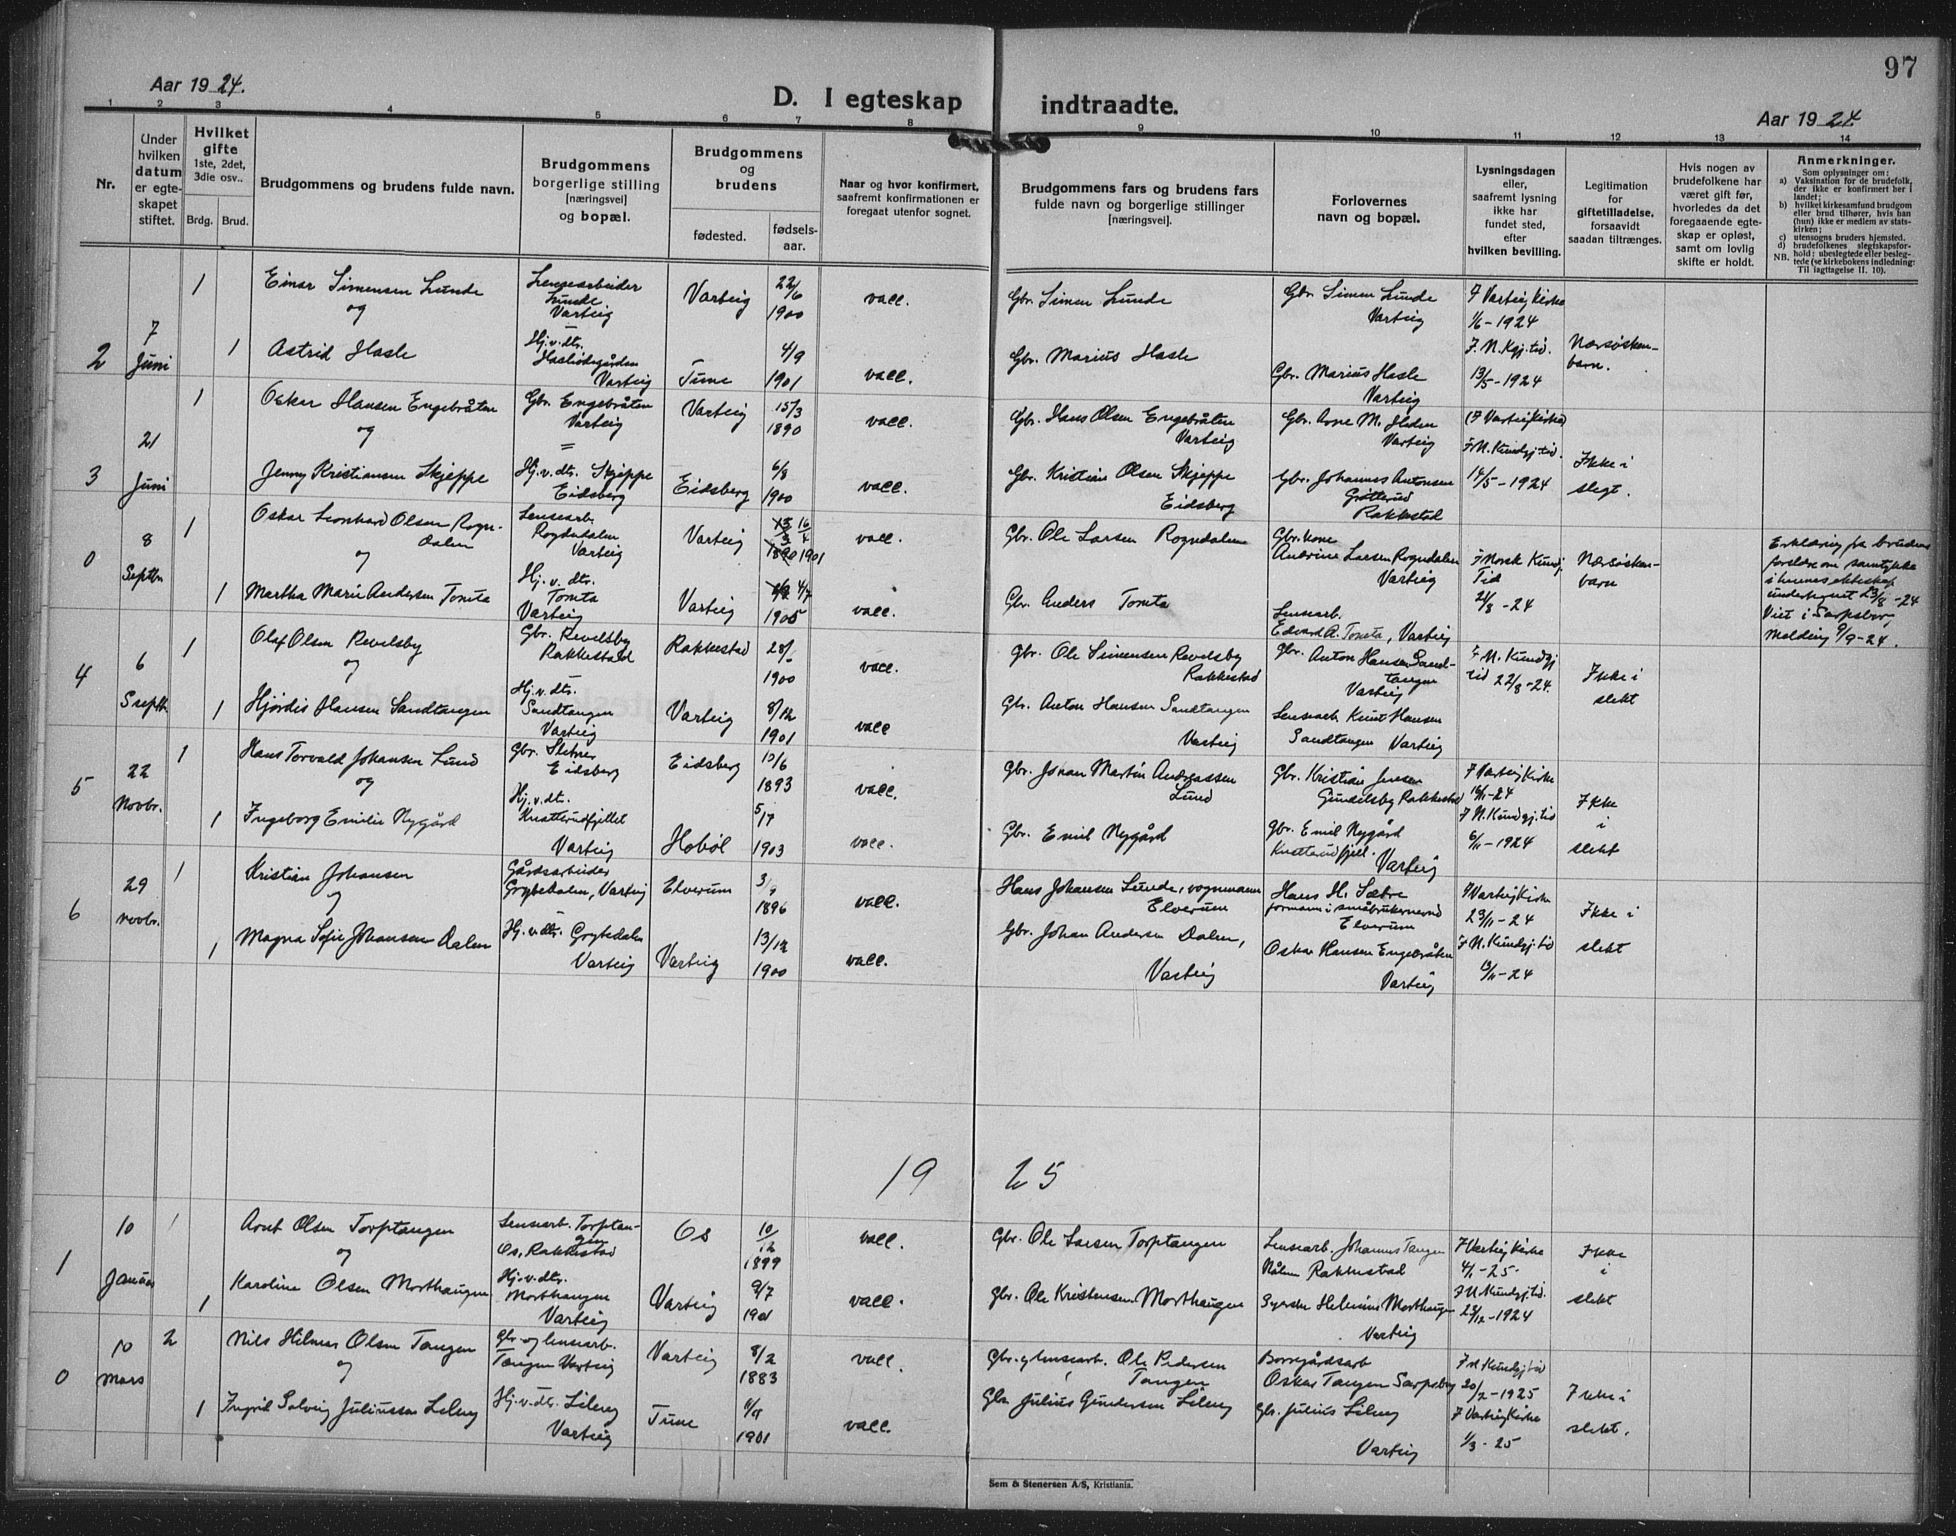 97
Aar 1924.
D. I egteskap indtraadte.
Aar 1924.
1 2 3 4 5 6 7 8 9 10 11 12 13 14
Nr.
Under hvilken datum er egte-skapet stiftet.
Hvilket gifte 1ste, 2det, 3die osv..
Brdg. Brud.
Brudgommens og brudens fulde navn.
Brudgommens borgerlige stilling [næringsvei] og bopæl.
Brudgommens og brudens
fødested. fødsels-aar.
Naar og hvor konfirmert, saafremt konfirmationen er foregaat utenfor sognet.
Brudgommens fars og brudens fars fulde navn og borgerlige stillinger [næringsvei].
Forlovernes navn og bopæl.
Lysningsdagen eller, saafremt lysning ikke har fundet sted, efter hvilken bevilling.
Legitimation for giftetilladelse, forsaavidt saadan tiltrænges.
Hvis nogen av brudefolkene har været gift før, hvorledes da det foregaaende egte-skap er opløst, samt om lovlig skifte er holdt.
Anmerkninger.
Som oplysninger om:
a) Vaksination for de brudefolk, der ikke er konfirmert her i landet;
b) hvilket kirkesamfund brudgom eller brud tilhører, hvis han (hun) ikke er medlem av stats-kirken;
c) utensogns bruders hjemsted.
d) brudefolkenes slegtskapsfor-hold: ubeslegtede eller besleg-tede (se kirkebokens indledning:
NB. Til iagttagelse II. 10).
2 7 Juni 1 Einar Simensen Lunde Lensearbeider Lunde Varteig Varteig 22/6 1900 vacc. Gbr. Simen Lunde Gbr. Simen Lunde Varteig I Varteig Kirke 1/6-1924
og
1 Astrid Hasle Hj.v.dtr. Varteig Tune 4/9 1901 vacc. Gbr. Marius Hasle Gbr. Marius Hasle Varteig I.N.Kgj.tid. 13/5-1924 Næsøsken-barn.
3 21 Juni 1 Oskar Hansen Engebråten Gbr. Engebråten Varteig Varteig 15/3 1890 vacc. Gbr. Hans Olsen Engebråten Varteig Gbr. Arne M. Varteig (I Varteig Kirke)
og
Jenny Kristiansen Skjeppe Hj.v.dtr. Skjeppe Eidsberg Eidsberg 6/8 1900 vacc. Gbr. Kristian Olsen Skjeppe Eidsberg Gbr. Johannes Antonsen Grøtterud Rakkestad I N. Kundgj.tid. 14/5-1924 Ikke i slegt.
0 8 Septbr. 1 Oskar Leonhard Olsen Rogn-dalen Lensearb. Rogndalen Varteig Varteig 16/4 1901 vacc. Gbr. Ole Larsen Rogndalen Gbr.kone Andrine Larsen Rogndalen Varteig I Norsk Kundgj. Tid 21/8-24 Næsøsken-barn
og
1 Martha Marie Andersen Tomta Hj.v.dtr. Tomta Varteig Varteig 4/7 1905 vacc. Gbr. Anders Tomta Lensearb. Edvard A. Tomta, Varteig
Erklæring fra brudens forældre om samtykke i hennes ekteskap undertegnet 23/8-24 Viet i Sarpsborg Melding 9/9-24.
4 6 Septbr. 1 Olaf Olsen Revelsby Gbr. Revelsby Rakkestad Rakkestad 1900 vacc. Gbr. Ole Simensen Revelsby Rakkestad Gbr. Anton Hansen Sand-tangen Varteig I N. Kundgj tid 22/8-24. Ikke i slekt
og
1 Hjørdis Hansen Sandtangen Hj.v.dtr. Sandtangen Varteig Varteig 8/12 1901 vacc Gbr. Anton Hansen Sandtangen Varteig Lensearb. Knut Hansen Sandtangen Varteig
5 22 Novbr. 1 Hans Torvald Johansen Lund Gbr. Slitner Eidsberg Eidsberg 1893 vacc. Gbr. Johan Martin Andreassen Lund Gbr. Kristian Jensen Gundelsby Rakkestad I Varteig Kirke 16/11-24
og
1 Ingeborg Emilie Nygård Hj.v.dtr. Knatterudfjellet Varteig Hobøl 1903 vacc. Gbr. Emil Nygård Gbr. Emil Nygård Knatterudfjell. Varteig I N. Kundgj.tid 6/11-1924 Ikke i slekt
6 29 Novbr. 1 Kristian Johansen Gårdsarbeider Grytedalen, Varteig Elverum 1896 vacc. Hans Johansen Lunde, vognmann Elverum Hans H. Sætre formann i småbrukernevnd Elverum I Varteig Kirke 23/11-24
og
1 Magna Sofie Johansen Dalen Hj.v.dtr. Grytedalen Varteig Varteig 13/12 1900 vacc. Gbr. Johan Andersen Dalen, Varteig Oskar Hansen Engebråten Varteig I N. Kundgj.tid 13/11-24 Ikke i slekt
19 25
1 10 Januar 1 Arnt Olsen Torptangen Lensearb. Torptan-gen Os, Rakkestad Os 10/12 1899 vacc. Gbr. Ole Larsen Torptangen Lensearb. Johannes Tangen Rakkestad I Varteig Kirke 4/1-25.
og
1 Karoline Olsen Morthaugen Hj.v.dtr. Morthaugen Varteig Varteig 9/7 1901 vacc. Gbr. Ole Kristensen Morthaugen Helmine Morthaugen Varteig I N. Kundgj.tid. 23/12-1924 Ikke i slekt
0 10 Mars 2 Nils Hilmar Olsen Tangen Gbr. og lensearb. Tangen Varteig Varteig 8/2 1883 vacc. Gbr. og lensearb. Ole Pedersen Tangen Borregårdsarb Oskar Tangen Sarpsborg I N Kundgj.tid 20/2-1925
og
1 Ingrid Solveig Juliussen Lileng Hj.v.dtr. Lileng Varteig Tune 1901 vacc. Gbr. Julius Gundersen Lileng Gbr. Julius Lileng Varteig I Varteig Kirke 1/3-25 Ikke i slekt.
Sem & Stenersen A/S, Kristiania.